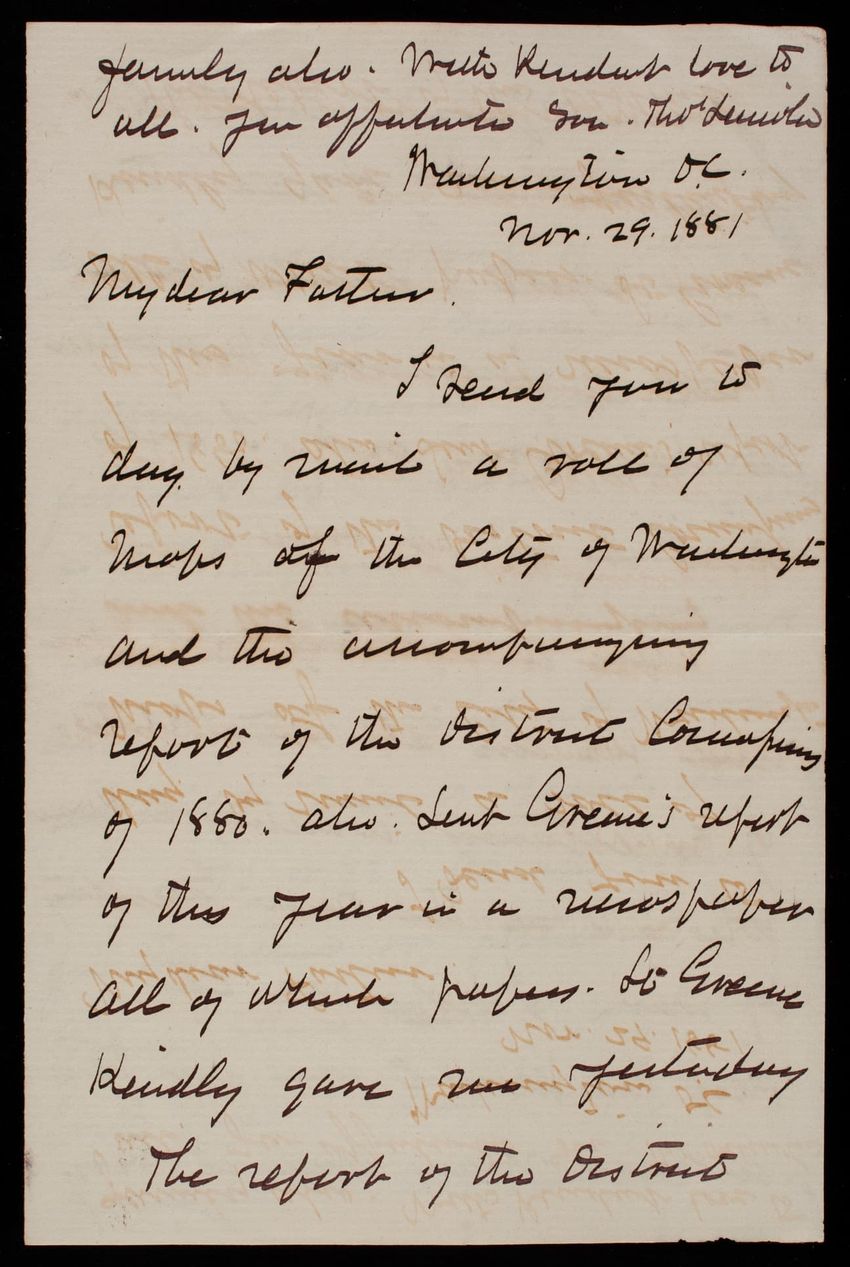 family also. With kindest love to
all. Your affectionate Son. Thos Lincoln
Washington D.C.
Nov. 29. 1881
My dear Father.
I send you to
day by mail a roll of
Maps of the City of Washington
and the accompanying
report of the District Commissioners
of 1880. also. Lieut Greene's report
of this year in a newspaper
all of which papers. Lt Greene
Kindly gave me yesterday
The report of the District